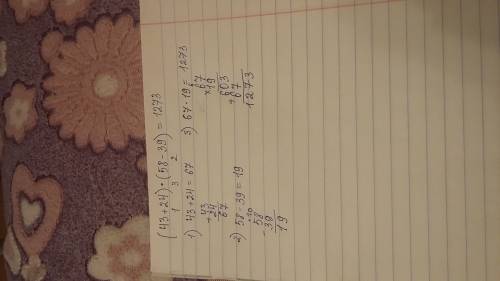 (43+24)·(58-39) = 1273
1 3 2
1) 43+24 = 67
+43
24
67
2) 58-39 = 19
+10
-58
39
19
3) 67·19 = 1273
67
×19
603
+67
1273